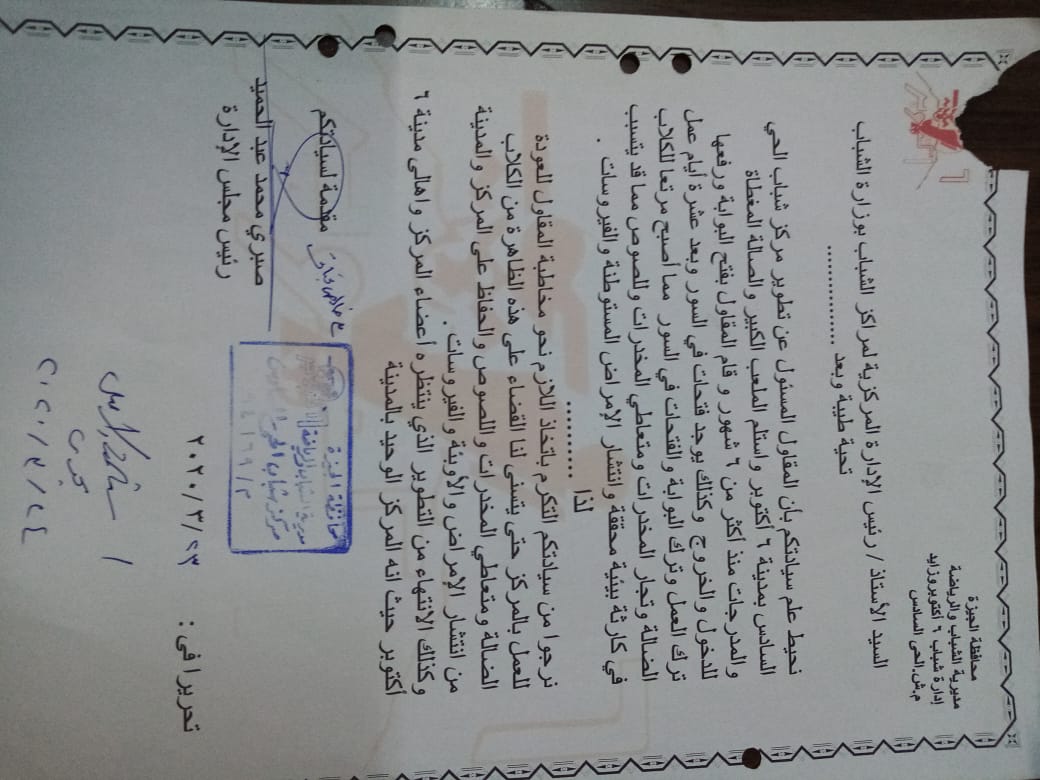 محافظة الجيزة
مديرية الشباب والرياضة
إدارة شباب ٦ أكتوبر وزايد
م.ش.الحى السادس
السيد الأستاذ / رئيس الإدارة المركزية لمراكز الشباب بوزارة الشباب
تحية طيبة وبعد ..............
نحيط علم سيادتكم بأن المقاول المسئول عن تطوير مركز شباب الحي
السادس بمدينة ٦ أكتوبر واستلم الملعب الكبير والصالة المغطاة
والمدرجات منذ أكثر من ٦ شهور و قام المقاول بفتح البوابة ورفعها
للدخول والخروج وكذلك يوجد فتحات في السور وبعد عشرة أيام عمل
ترك العمل وترك البوابة والفتحات في السور مما أصبح مرتعا للكلاب
الضالة وتجار المخدرات ومتعاطي المخدرات وللصوص مما قد يتسبب
في كارثة بيئية محققة وانتشار الإمراض المستوطنة والفيروسات .
لذا ..........
نرجوا من سيادتكم التكرم باتخاذ اللازم نحو مخاطبة المقاول للعودة
للعمل بالمركز حتى يتسنى لنا القضاء على هذه الظاهرة من الكلاب
الضالة ومتعاطي المخدرات واللصوص والحفاظ على المركز والمدينة
من انتشار الإمراض والأوبئة والفيروسات .
وكذلك الانتهاء من التطوير الذي ينتظره أعضاء المركز واهالى مدينة ٦
أكتوبر حيث انه المركز الوحيد بالمدينة
مقدمة لسيادتكم
صبري محمد عبد الحميد
رئيس مجلس الإدارة
محافظة الجيزة
مديرية الشباب والرياضة
تحريرا فى : ٢٠٢٠/٣/٢٣